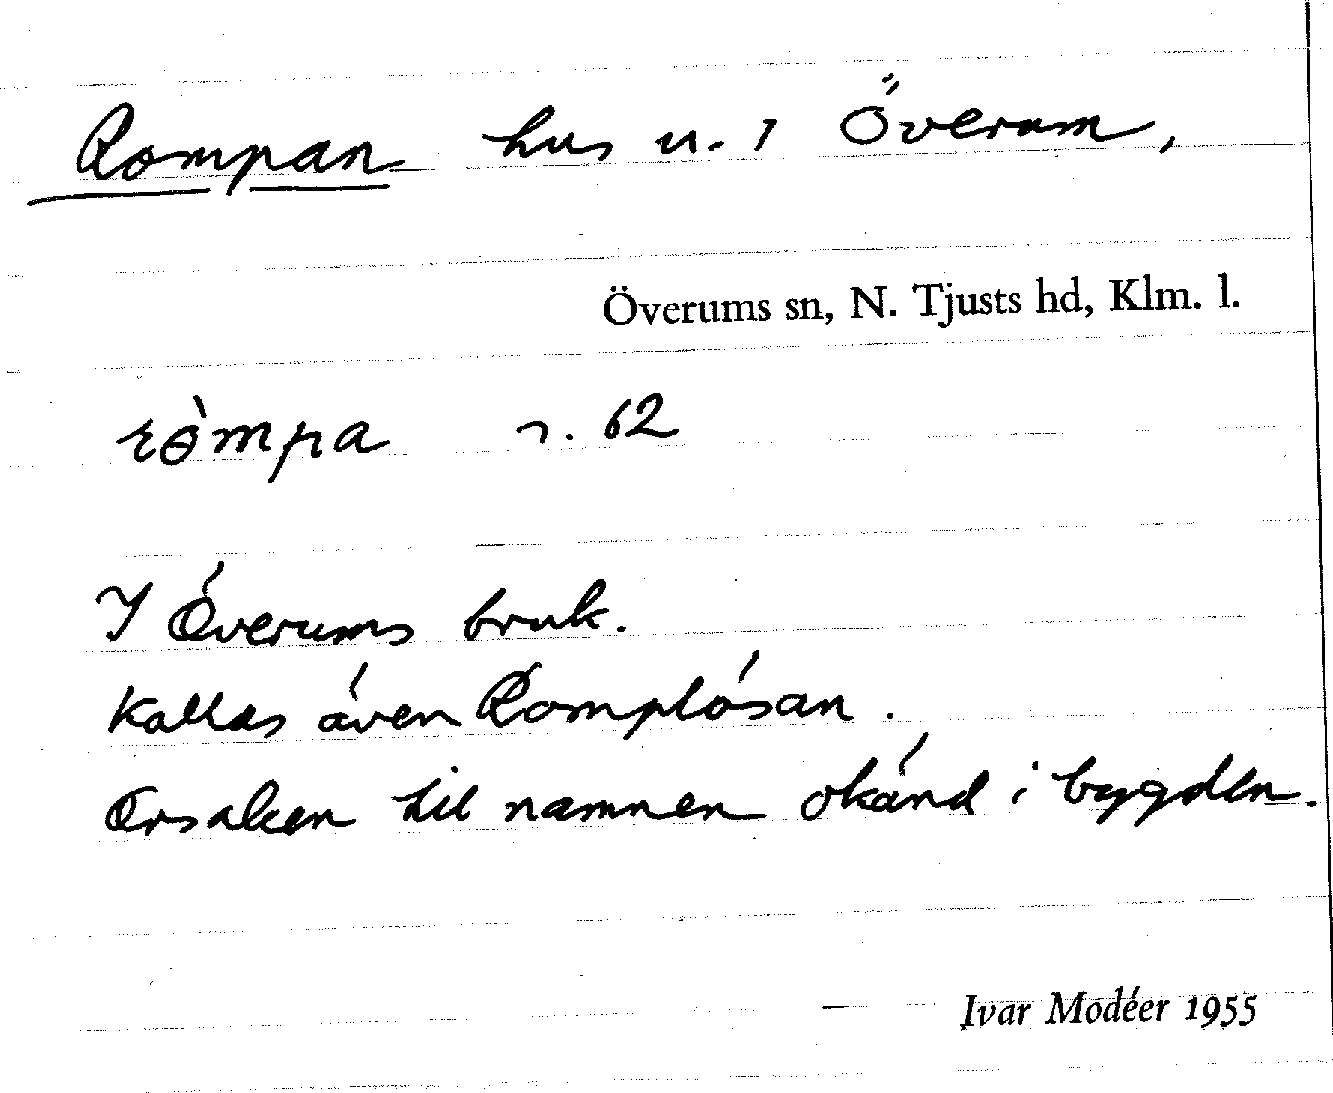 Rompan hus u. 1 Överum,
Överums sn, N. Tjusts hd, Klm. l.
rɵ̀mpa r. 62
I Överums bruk.
Kallas även Romplösan.
Orsaken till namnen okänd i bygden.
Ivar Modéer 1955